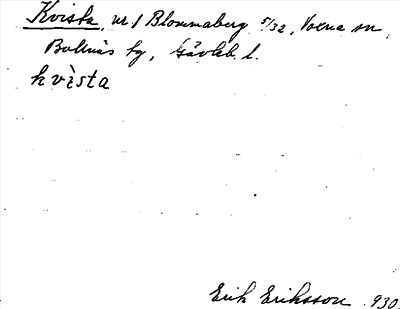 Kvista, ur / Blommaberg 5/32, Voxna sn,
Bollnäs tg, Gävleb. l.
kvìsta
Erik Eriksson 930